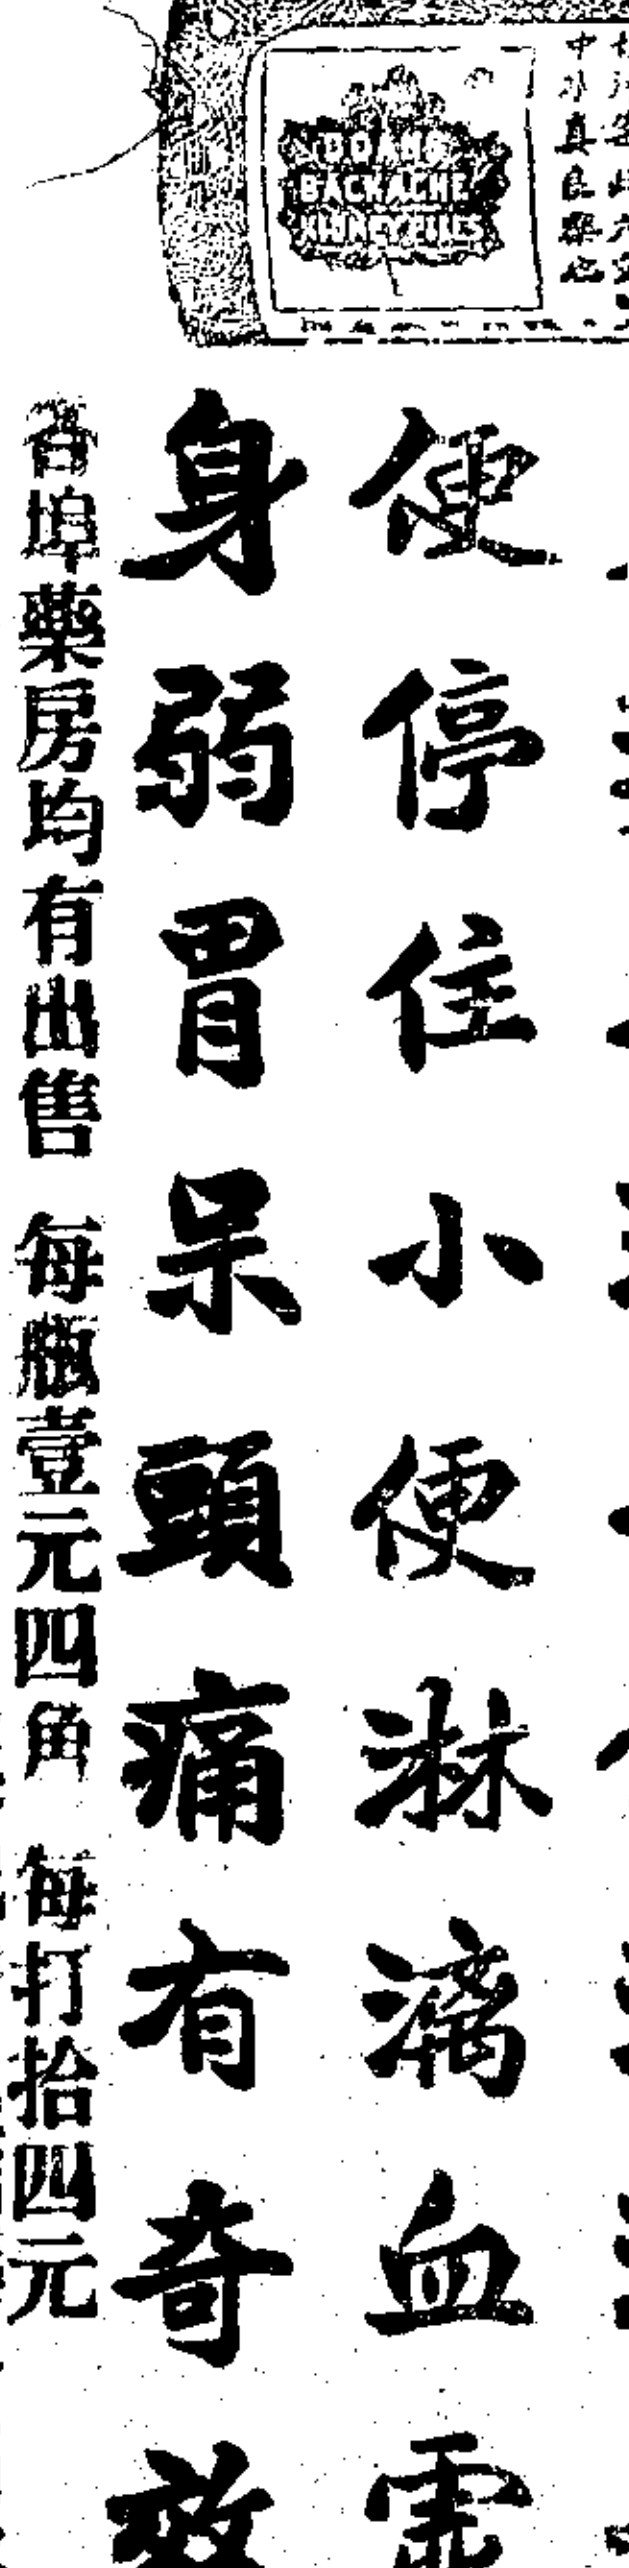 DOANS
BACKACHE
KIDNEY PILLS
中外真良藥也
便停住小便淋漓血
身弱胃呆頭痛有奇效
各埠藥房均有出售 每瓶壹元四角 每打拾四元